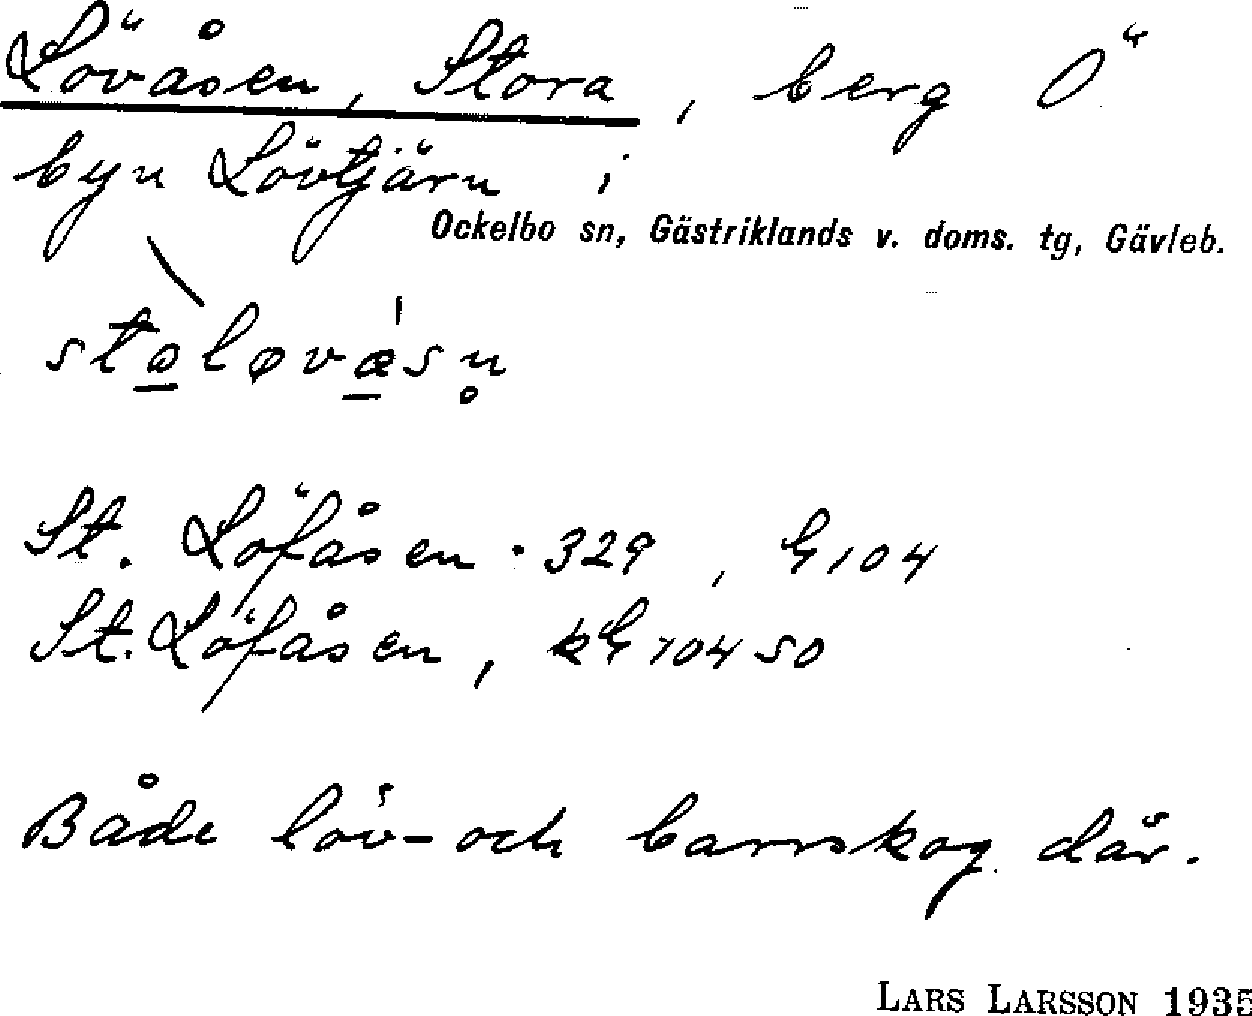 Lövåsen, Stora, berg Ö
byn Lövtjärn i
Ockelbo sn, Gästriklands v. doms. tg, Gävleb.
St. Löfåsen · 329, G 104
St. Löfåsen, kG 104 50
Både löv- och barrskog där.
LARS LARSSON 1935